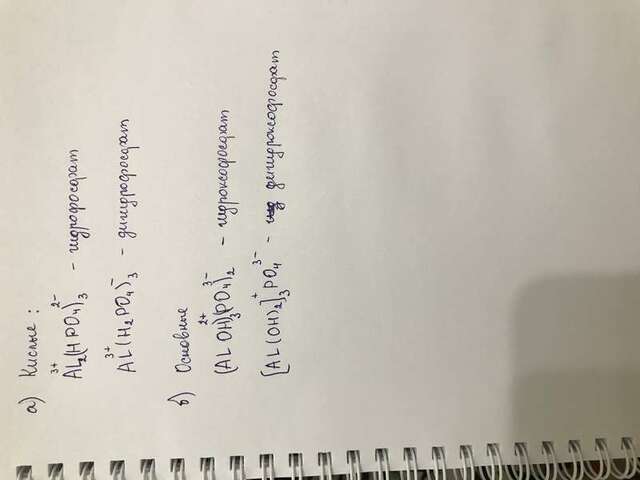 а) Кислые:
Al₂³⁺(HPO₄)₃²⁻ - гидрофосфат
Al³⁺(H₂PO₄)₃⁻ - дигидрофосфат
б) Основные
(AlOH)₃²⁺(PO₄)₂³⁻ - гидроксофосфат
[Al(OH)₂]₃⁺PO₄³⁻ - дигидроксофосфат